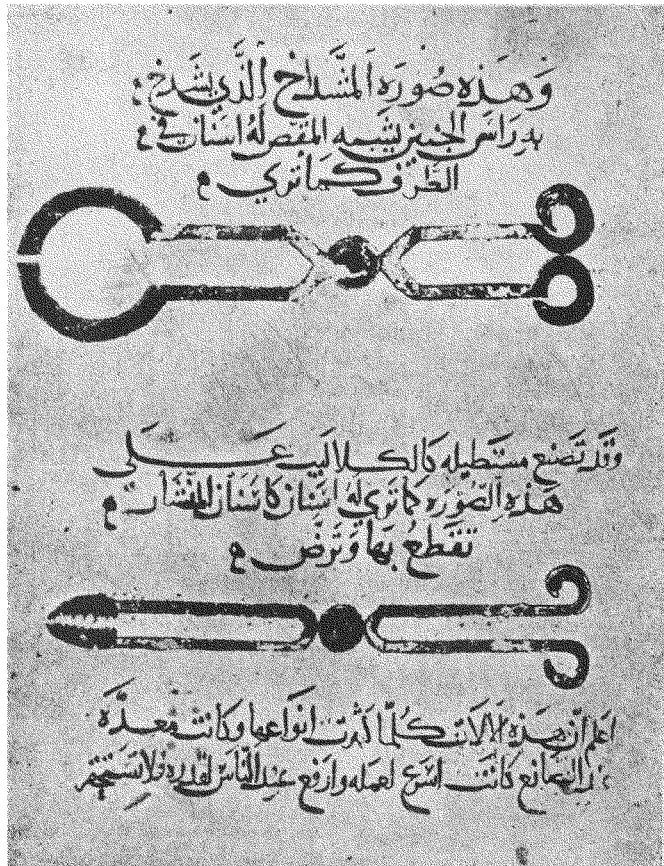 وَهَذِه صُورَة المشْدَاخ الَّذِي يَشْدَخ
بهِ رَاسَ الجنين يشبه المقص لهُ اسنان في
الطَّرف كما ترى
وَقَد تَصنع مستطيله كالكلاليب عَلَى
هَذِه الصُّورَه كما تري لهُ اسنان كاسنان المنْشَار
تقطعُ بهَا وَترَضّ
اعلم انَّ هَذِهِ الالات كُلّما كثرت انواعها وكانت معدّة
عند الصانع كانت اسرع لعمله وارفع عند النَّاس لقدره فلا تستحقر